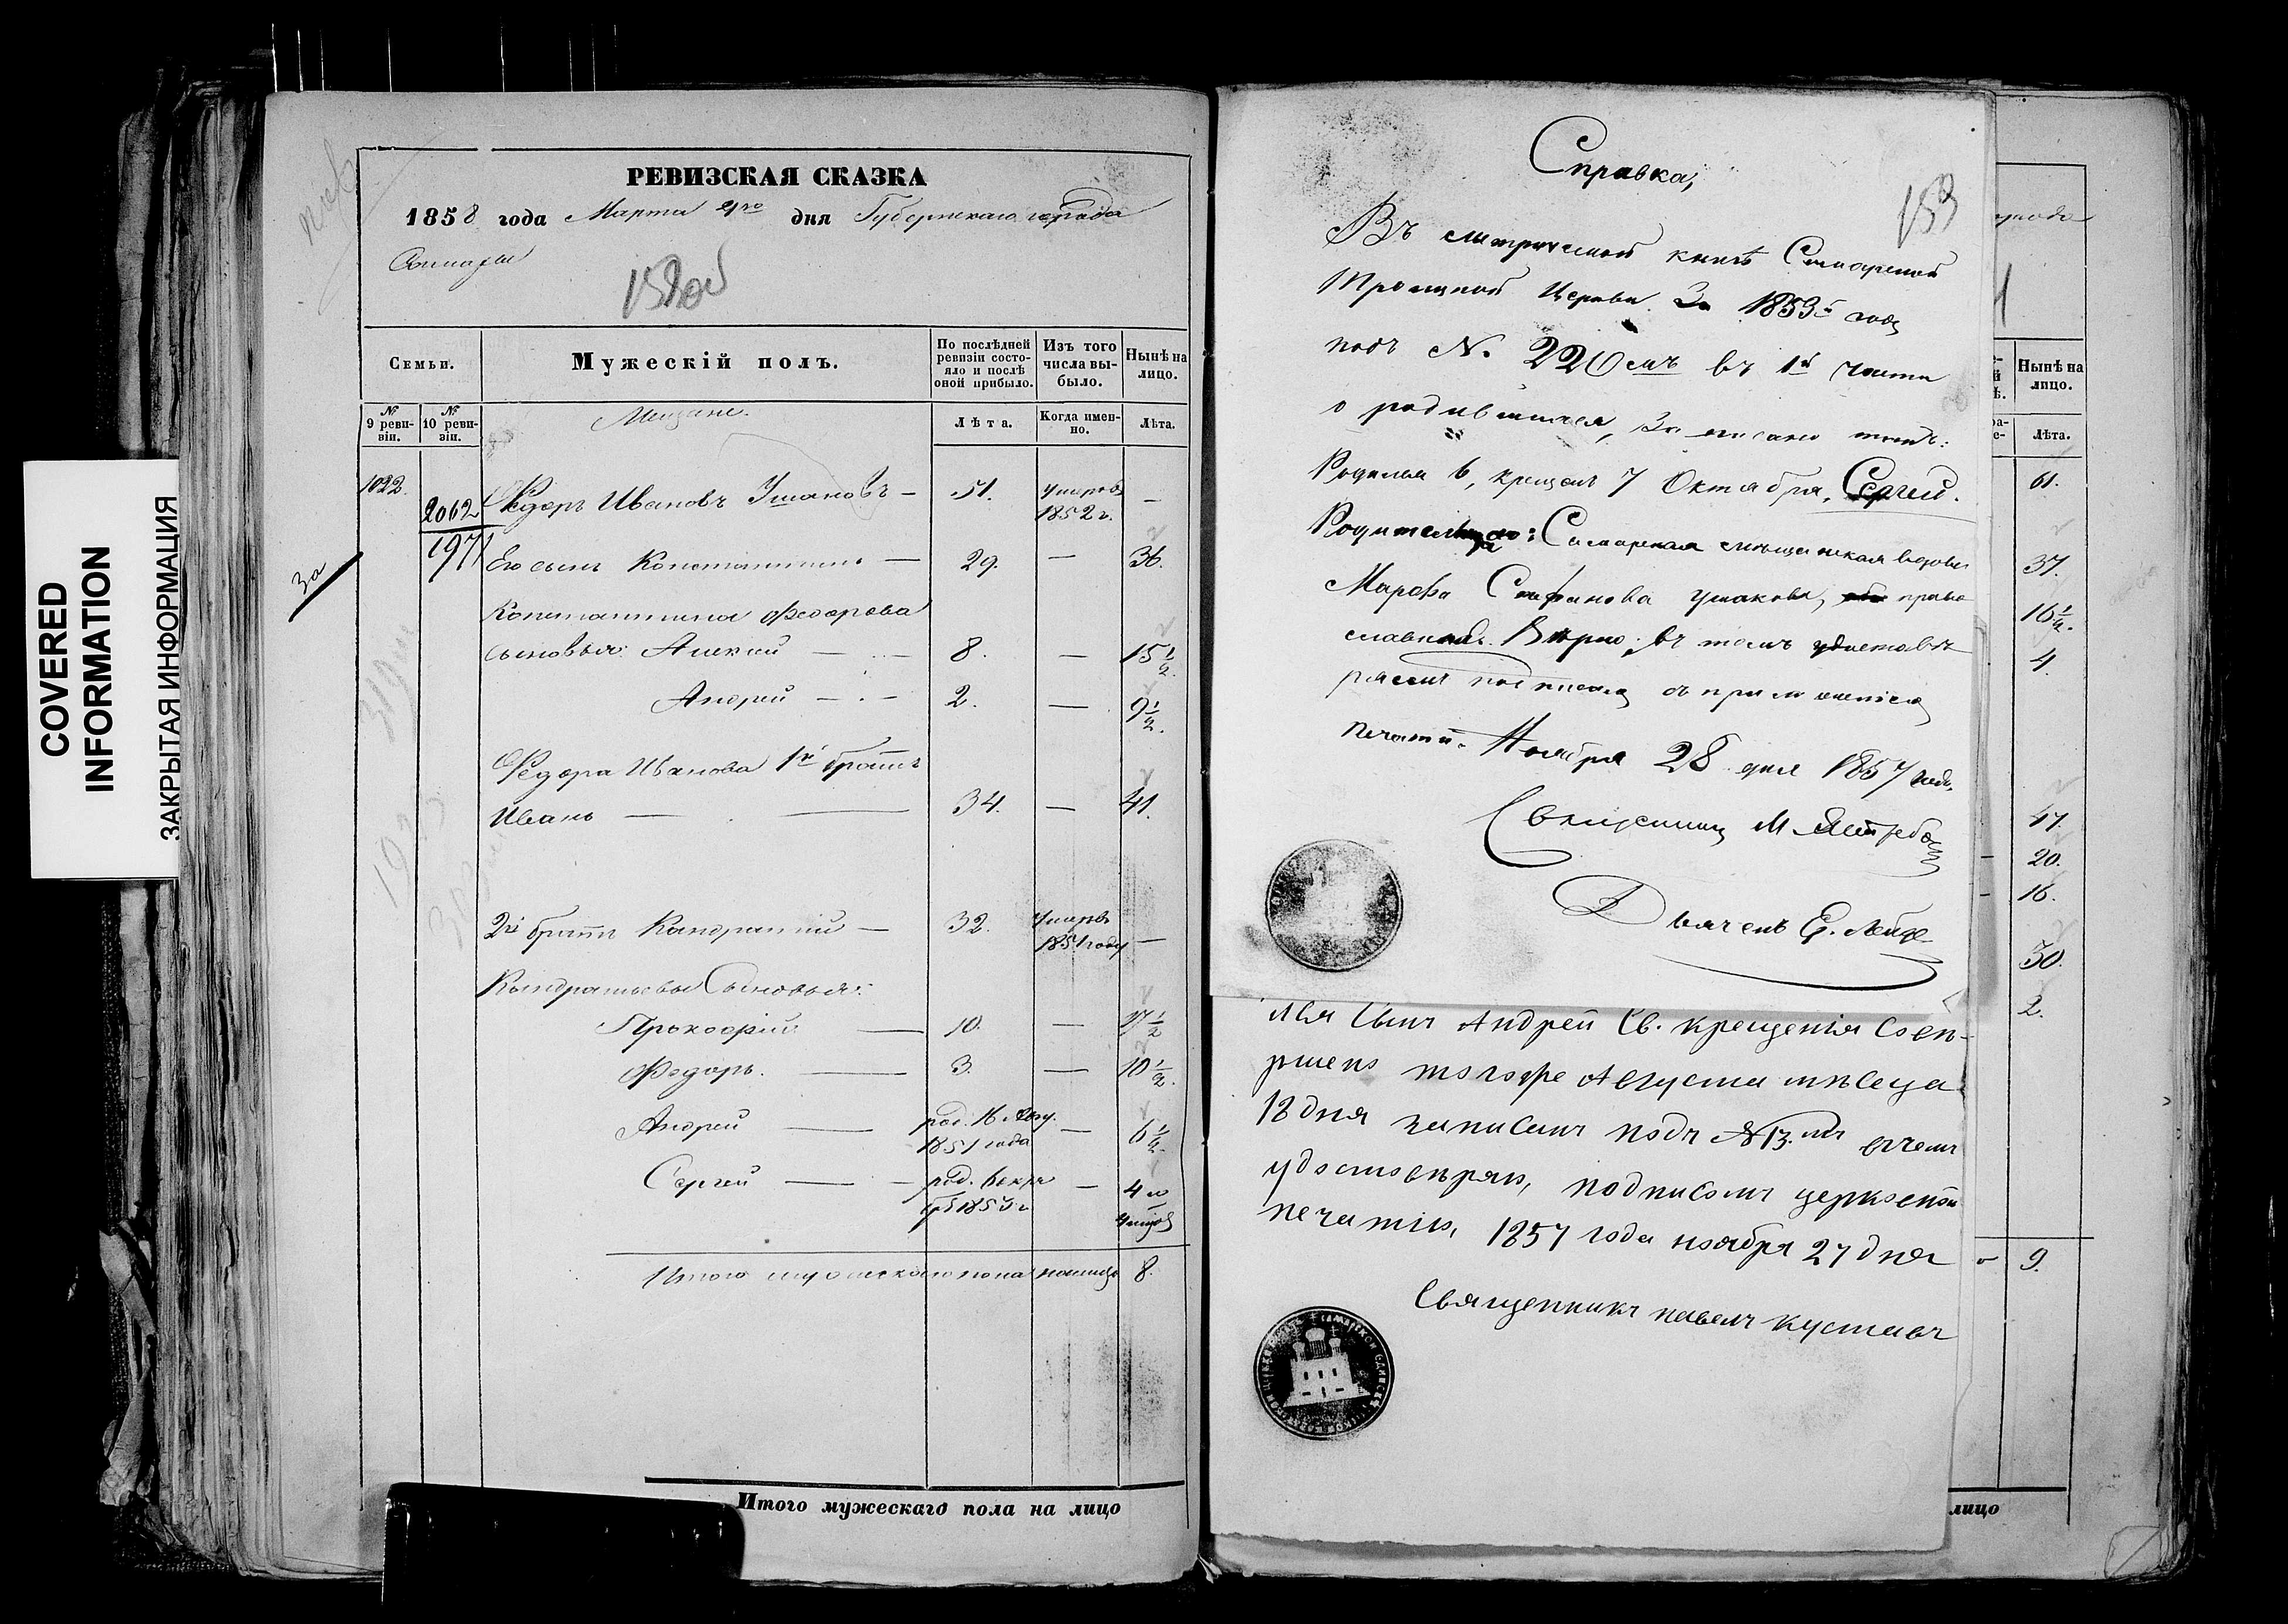 COVERED
INFORMATION
ЗАКРЫТАЯ ИНФОРМАЦИЯ
РЕВИЗСКАЯ СКАЗКА
1858 года Марта дня Губернскаго города
Самары
Семьи.
Мужескій полъ.
По послѣдней ревизіи состояло и послѣ оной прибыло.
Изъ того числа выбыло.
Нынѣ на лицо.
№ 9 ревизіи.
№ 10 ревизіи.
Мещане.
Лѣта.
Когда именно.
Лѣта.
1022. 2062 Федоръ Ивановъ Ушаковъ — 51. умеръ 1852 г. —
1971 Его сынъ Константинъ — 29. — 36.
За
Константина Федорова
сыновья: Алексѣй — 8. — 15 1/2.
Андрей — 2. — 9 1/2.
Федора Иванова 1й братъ
Иванъ — 34. — 41.
2й братъ Кондратій — 32. умеръ 1851 году —
Кондратьевы Сыновья:
Прокофій — 10. — 17 1/2
Федоръ. — 3. — 10 1/2.
Андрей — род. 16 Авгу. 1851 года — 6 1/2.
Сергей — род. 6 октяб 1853 г — 4
Итого мужескаго пола на лицо 8.
Итого мужескаго пола на лицо
Справка,
153
Въ метрической книгѣ Самарской
Троицкой Церкви за 1853й годъ
подъ №. 220мъ въ 1й части
о родившихся, записано такъ:
Родился 6, крещенъ 7 Октября, Сергей.
Самарская мѣщанская вдова
Марфа Стефанова Ушакова, право
славной. Вѣрно; въ томъ удостовѣ
ряемъ подписомъ съ приложеніемъ
печати. Ноября 28 дня 1857 года.
Священникъ М. Ястребо
Дьяченъ Е.
лія Сынъ Андрей Св. крещенія Совер-
шено тогоже Августа мѣсеца
18 дня записанъ подъ №13.мъ вчемъ
удостовѣряю, подписомъ церковной
печатію, 1857 года ноября 27 дня
Священникъ павелъ кустовъ
Нынѣ на лицо.
Лѣта.
61.
37.
16 1/2.
4.
47.
20.
16.
30.
2.
9.
лицо